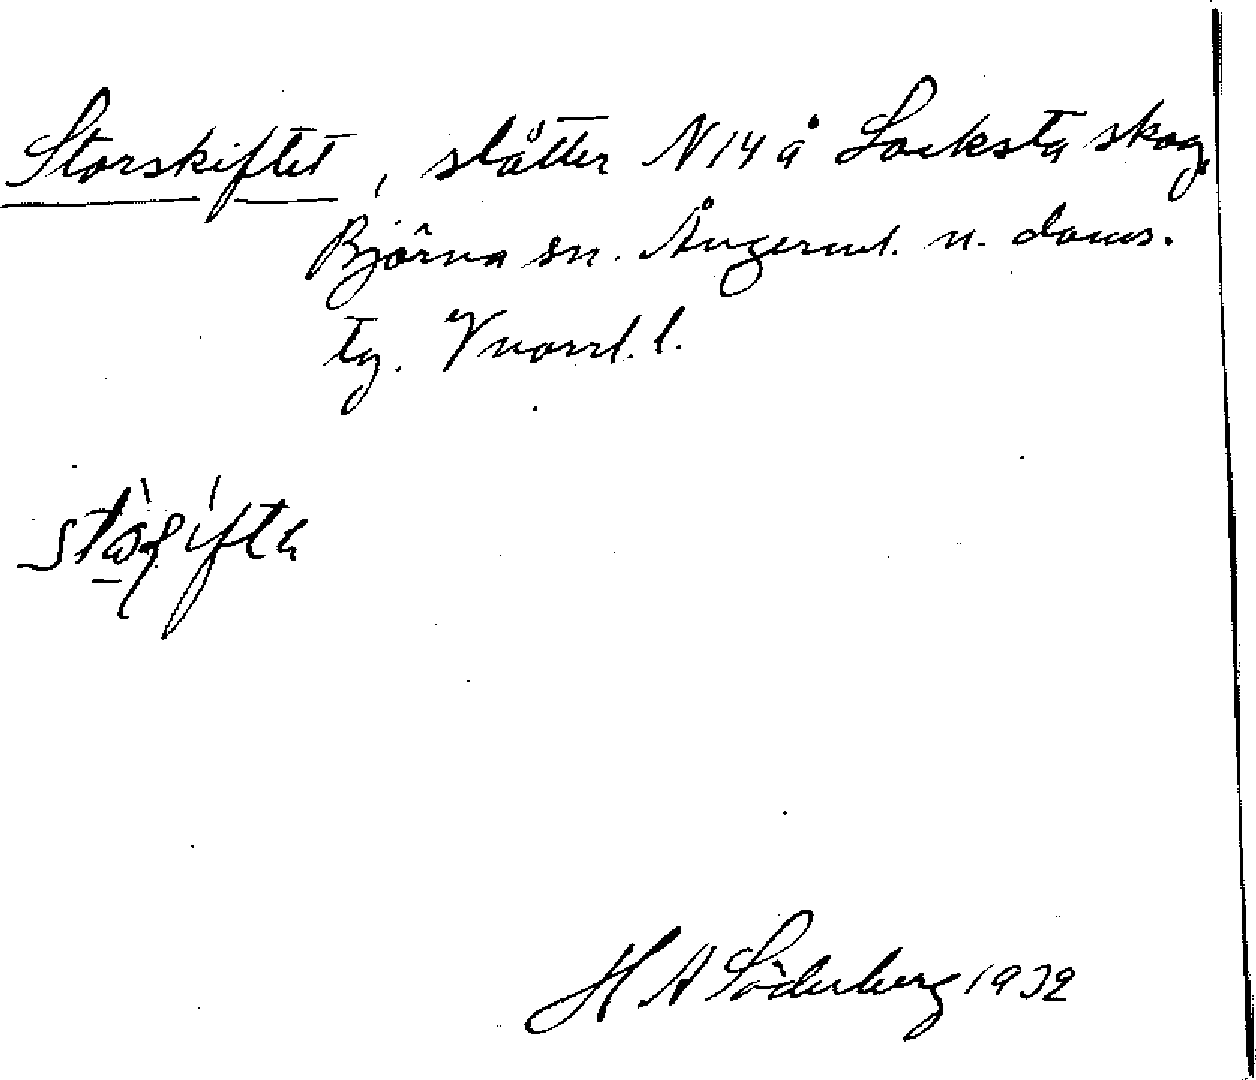 Storskiftet, slåtter N 14 å Locksta skog,
Björna sn. Ångerml. n. doms.
tg. Vnorrl. l.
H A Söderberg 1932